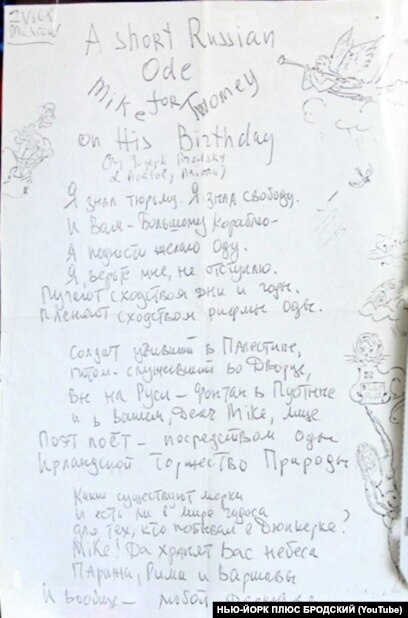 2 V 65
Moscow
A short Russian
Ode
for Mike Twomey
on His Birthday
(by Joseph Brodsky
& Anatoly Naiman)
Я знал тюрьму. Я знал свободу.
И Вам – Большому Кораблю –
Я поднести желаю Оду.
Я, верьте мне, не отступлю.
Пугают сходством дни и годы.
Пленяют сходством рифмы оды.
Солдат, уживший в Палестине,
потом – служивший во Дворце,
Вы на Руси – фонтан в Пустыне
и в Вашем, Dear Mike, лице
Поэт поёт – посредством оды
Ирландской Торжество Природы
Какие существуют мерки
и есть ли в мире чудеса
для тех, кто побывал в Дюнкерке?
Mike! Да хранят Вас небеса
Парижа, Рима и Варшавы
И вообще – любой
НЬЮ-ЙОРК ПЛЮС БРОДСКИЙ (YouTube)